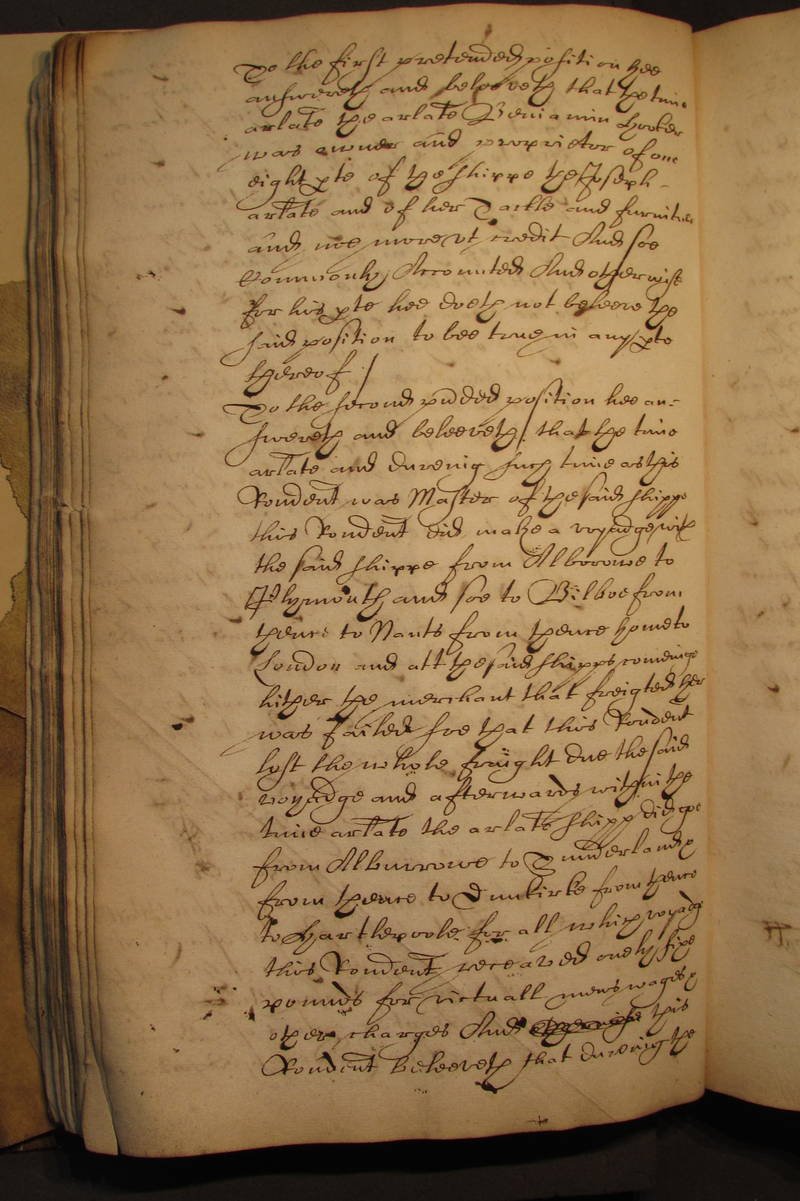 To the first pretended position hee
answereth and beleeveth that the time
arlate the arlate Beniamin Hooker
was owner and proprietor of one
eight pte of the shippe the Joseph
arlate and of her Tackle and furniture
and noe more vt credit And soe
Commonly Accounted And otherwise
for his pte hee doeth not beleeve the
said position to bee true in any pte
thereof /
To the second pñded position hee an-
swereth and beleeveth, that the time
arlate and dureing such time as this
Rondent was Master of the said shippe
this Rondent did make a voyadge with
the said shippe from Alborowe to
Plymouth and soe to Bilboe from
thence to Nants from thence home to
London and att the said shipps comeinge
hither the merchant that freigted her
was failed soe that this Rondent
lost the whole fraight due the said
voyadge and afterwards within the
time arlate the arlate shipp did goe
from Alburrowe to Sunderland &
from thence to Dunkirke from thence
to Hartlepoole for all which voyadge
this Rondent receaved onely five
pounds for victuall mens wages &
other charges And this
Rondent beleeveth that dureing the